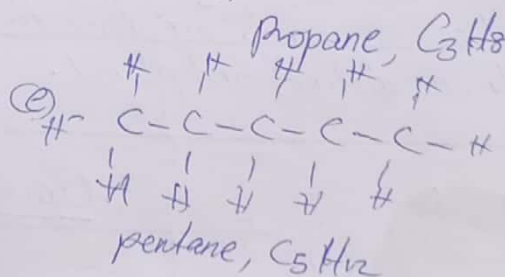 Propane, C3H8
H H H H H
(e) H- C - C - C - C - C - H
H H H H H
pentane, C5H12